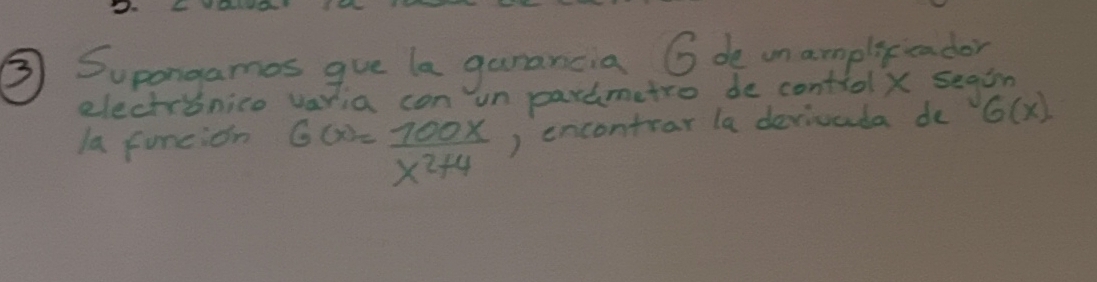 ③ Supongamos que la ganancia G de un amplificador
electrónico varia con un parámetro de control X según
la función G(x)= 100X / X²+4, encontrar la derivada de G(x).